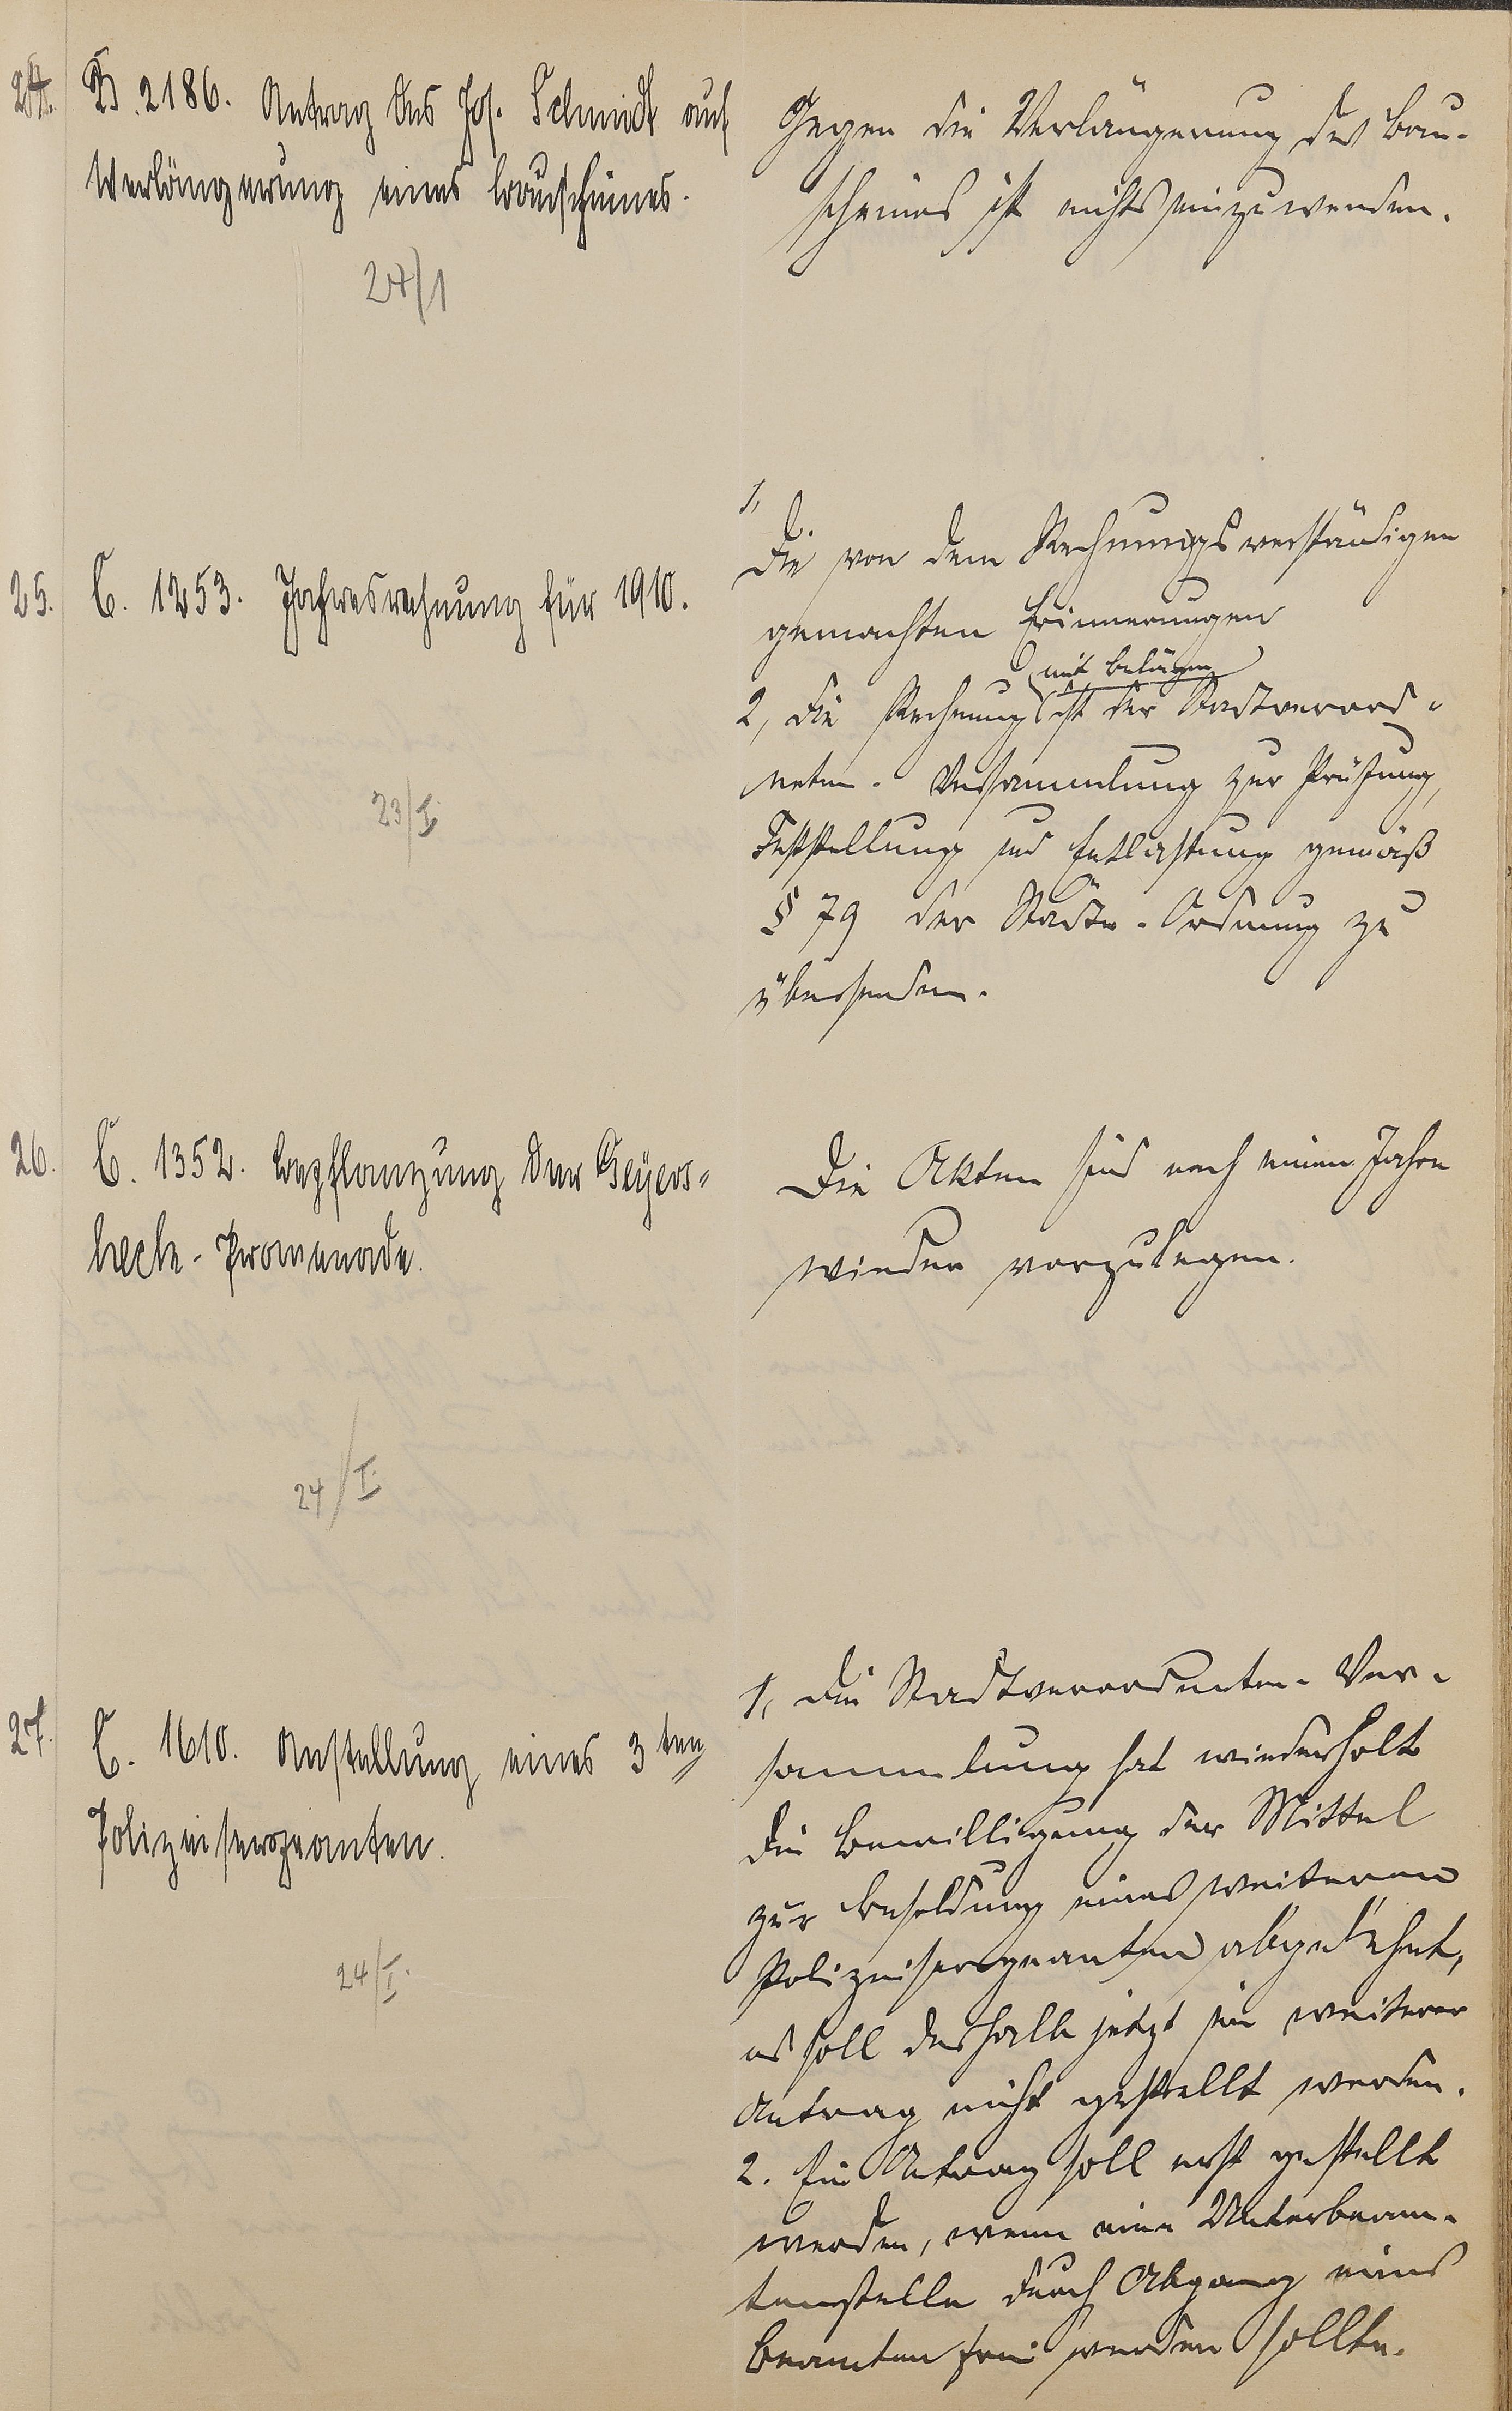 24. B. 2186. Antrag des Jos. Schmidt auf
Verlängerung eines Bauscheines.
24/1
Gegen die Verlängerung des Bau-
scheines ist nichts einzuwenden.
25. C. 1253. Jahresrechnung für 1910.
23/I.
1,
Die von dem Rechnungsverständigen
gemachten Erinnerungen
mit Belägen
2, die Rechnung ist der Stadtverord-
neten-Versammlung zur Prüfung,
Feststellung und Entlastung gemäß
§ 79 der Städte-Ordnung zu
übersenden.
26. C. 1352. Bepflanzung der Geyers-
heck-Promenade.
24/I.
Die Akten sind nach einem Jahre
wieder vorzulegen.
27. C. 1610. Anstellung eines 3ten
Polizeisergeanten.
24/I.
1, Die Stadtverordneten-Ver-
sammlung hat wiederholt
die Bewilligung der Mittel
zur Besoldung eines weiteren
Polizeisergeanten abgelehnt,
es soll deshalb jetzt ein weiterer
Antrag nicht gestellt werden.
2. Ein Antrag soll erst gestellt
werden, wenn eine Unterbeam-
tenstelle durch Abgang eines
Beamten frei werden sollte.